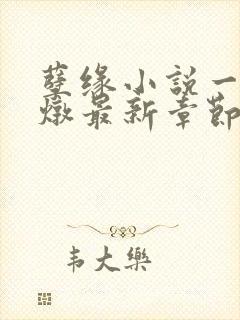 孽缘小説一
燉最新章節
韦大樂